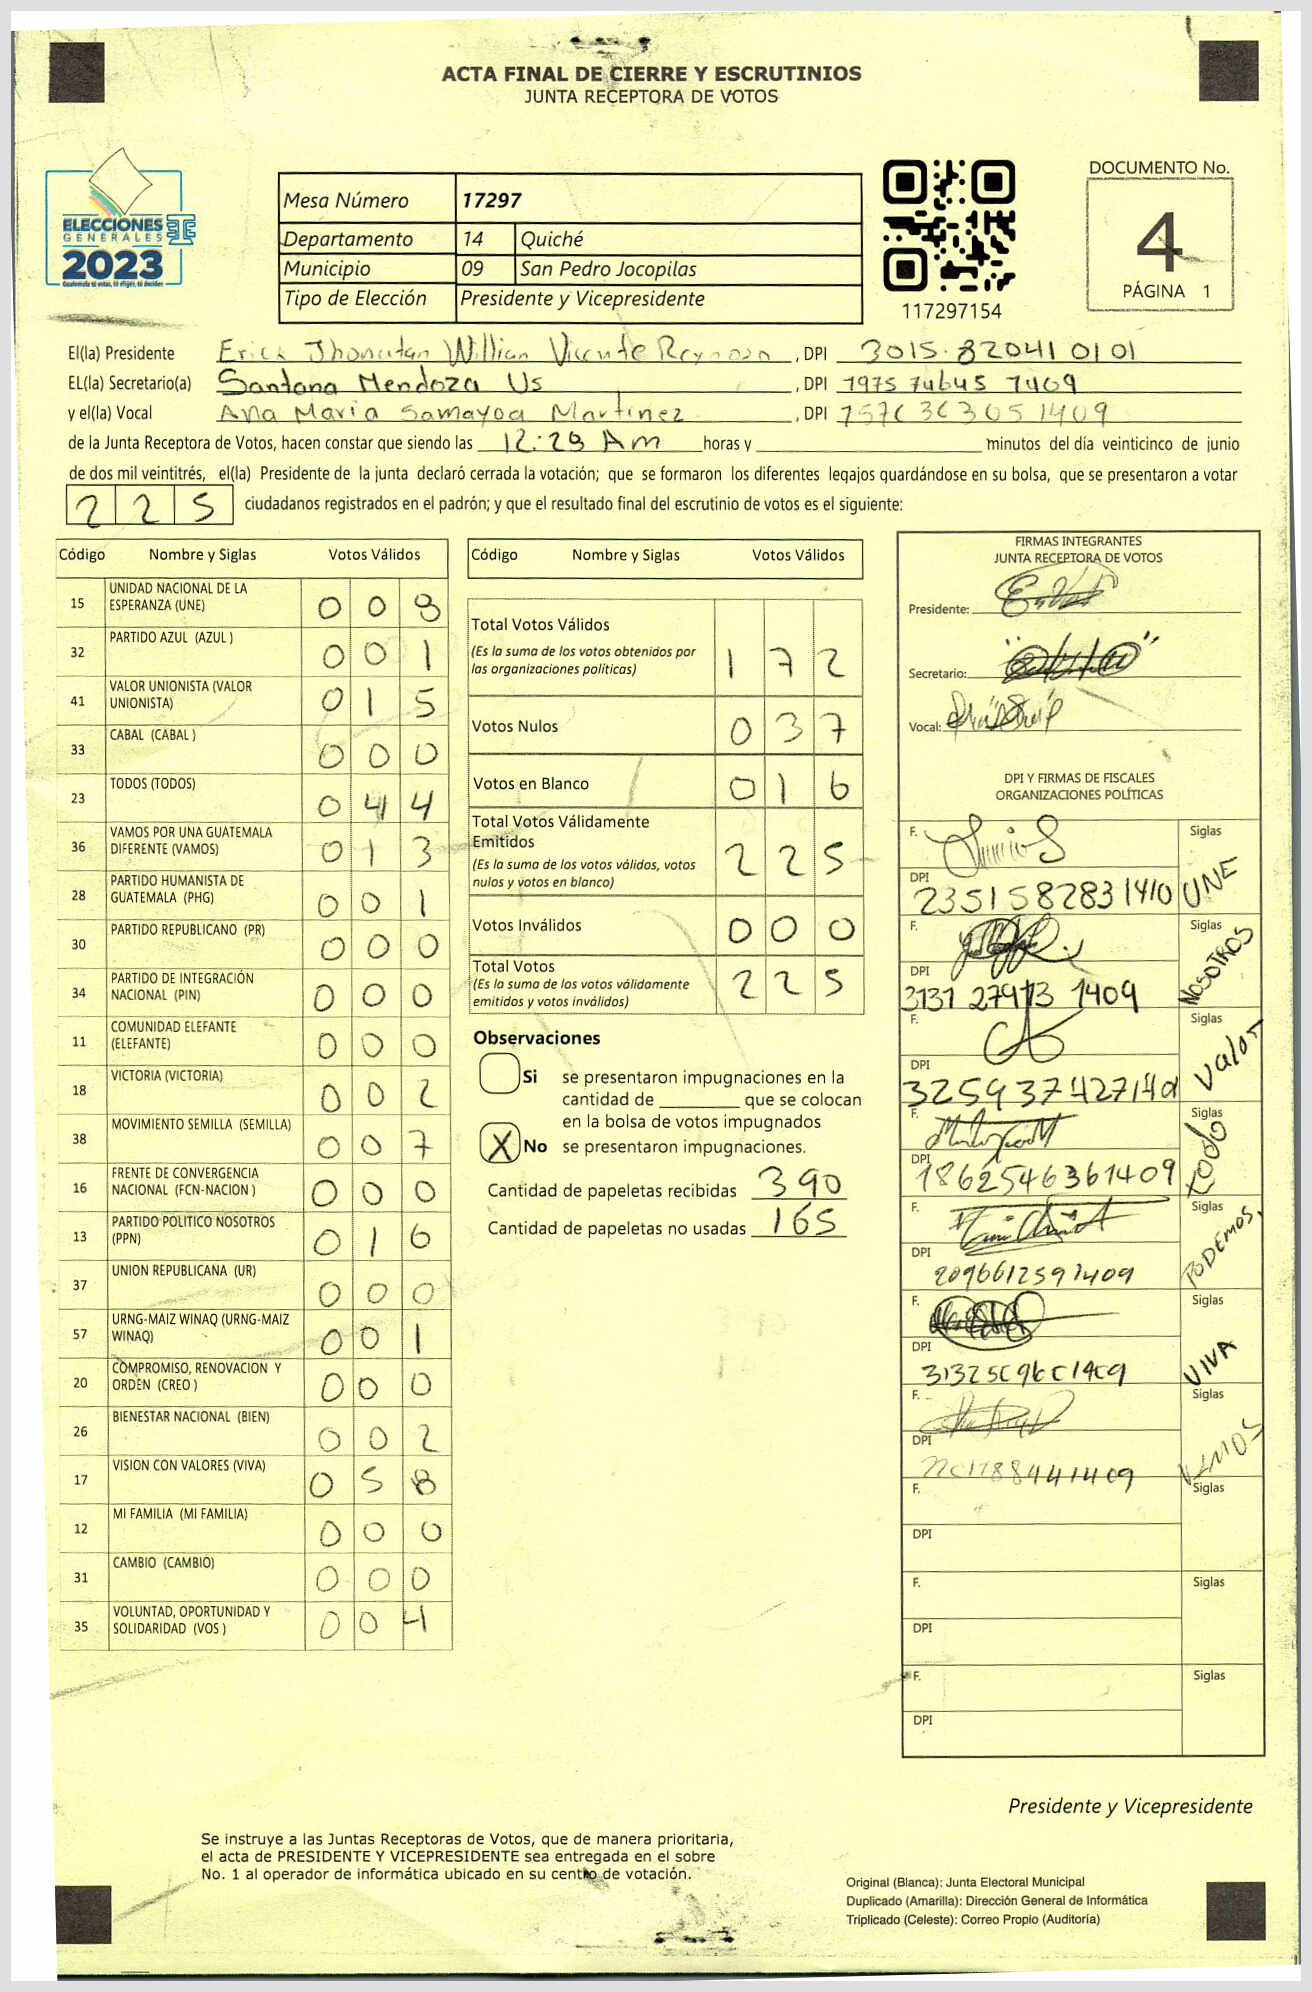 ACTA FINAL DE CIERRE Y ESCRUTINIOS
JUNTA RECEPTORA DE VOTOS
ELECCIONES
GENERALES
2023
Guatemala tú votas, tú eliges, tú decides
Mesa Número 17297
Departamento 14 Quiché
Municipio 09 San Pedro Jocopilas
Tipo de Elección Presidente y Vicepresidente
117297154
DOCUMENTO No.
4
PÁGINA 1
El(la) Presidente Erick Jhonatan Willian Vicente Reynoso, DPI 3015 82041 0101
EL(la) Secretario(a) Santana Mendoza Us, DPI 1975 74645 1409
y el(la) Vocal Ana Maria Samayoa Martinez, DPI
de la Junta Receptora de Votos, hacen constar que siendo las 12:29 Am horas y minutos del día veinticinco de junio
de dos mil veintitrés, el(la) Presidente de la junta declaró cerrada la votación; que se formaron los diferentes legajos quardándose en su bolsa, que se presentaron a votar
2 2 5 ciudadanos registrados en el padrón; y que el resultado final del escrutinio de votos es el siguiente:
Código Nombre y Siglas Votos Válidos
15 UNIDAD NACIONAL DE LA ESPERANZA (UNE) 0 0 8
32 PARTIDO AZUL (AZUL ) 0 0 1
41 VALOR UNIONISTA (VALOR UNIONISTA) 0 1 5
33 CABAL (CABAL ) 0 0 0
23 TODOS (TODOS) 0 4 4
36 VAMOS POR UNA GUATEMALA DIFERENTE (VAMOS) 0 1 3
28 PARTIDO HUMANISTA DE GUATEMALA (PHG) 0 0 1
30 PARTIDO REPUBLICANO (PR) 0 0 0
34 PARTIDO DE INTEGRACIÓN NACIONAL (PIN) 0 0 0
11 COMUNIDAD ELEFANTE (ELEFANTE) 0 0 0
18 VICTORIA (VICTORIA) 0 0 2
38 MOVIMIENTO SEMILLA (SEMILLA) 0 0 7
16 FRENTE DE CONVERGENCIA NACIONAL (FCN-NACION ) 0 0 0
13 PARTIDO POLITICO NOSOTROS (PPN) 0 1 6
37 UNION REPUBLICANA (UR) 0 0 0
57 URNG-MAIZ WINAQ (URNG-MAIZ WINAQ) 0 0 1
20 COMPROMISO, RENOVACION Y ORDEN (CREO ) 0 0 0
26 BIENESTAR NACIONAL (BIEN) 0 0 2
17 VISION CON VALORES (VIVA) 0 5 8
12 MI FAMILIA (MI FAMILIA) 0 0 0
31 CAMBIO (CAMBIO) 0 0 0
35 VOLUNTAD, OPORTUNIDAD Y SOLIDARIDAD (VOS ) 0 0 4
Código Nombre y Siglas Votos Válidos
Total Votos Válidos
(Es la suma de los votos obtenidos por
las organizaciones políticas) 1 7 2
Votos Nulos 0 3 7
Votos en Blanco 0 1 6
Total Votos Válidamente
Emitidos
(Es la suma de los votos válidos, votos
nulos y votos en blanco) 2 2 5
Votos Inválidos 0 0 0
Total Votos
(Es la suma de los votos válidamente
emitidos y votos inválidos) 2 2 5
Observaciones
Si se presentaron impugnaciones en la
cantidad de ________ que se colocan
en la bolsa de votos impugnados
X No se presentaron impugnaciones.
Cantidad de papeletas recibidas 390
Cantidad de papeletas no usadas 165
FIRMAS INTEGRANTES
JUNTA RECEPTORA DE VOTOS
Presidente:
Secretario:
Vocal:
DPI Y FIRMAS DE FISCALES
ORGANIZACIONES POLÍTICAS
F. Siglas UNE
DPI 2351582831410
F. Siglas NOSOTROS
DPI
F. Siglas Valor
DPI
F. Siglas todos
DPI 1862546361409
F. Siglas PODEMOS.
DPI 2096612591409
F. Siglas VIVA
DPI
F. Siglas VAMOS
DPI
F. Siglas
DPI
F. Siglas
DPI
F. Siglas
DPI
Presidente y Vicepresidente
Se instruye a las Juntas Receptoras de Votos, que de manera prioritaria,
el acta de PRESIDENTE Y VICEPRESIDENTE sea entregada en el sobre
No. 1 al operador de informática ubicado en su centro de votación.
Original (Blanca): Junta Electoral Municipal
Duplicado (Amarilla): Dirección General de Informática
Triplicado (Celeste): Correo Propio (Auditoría)